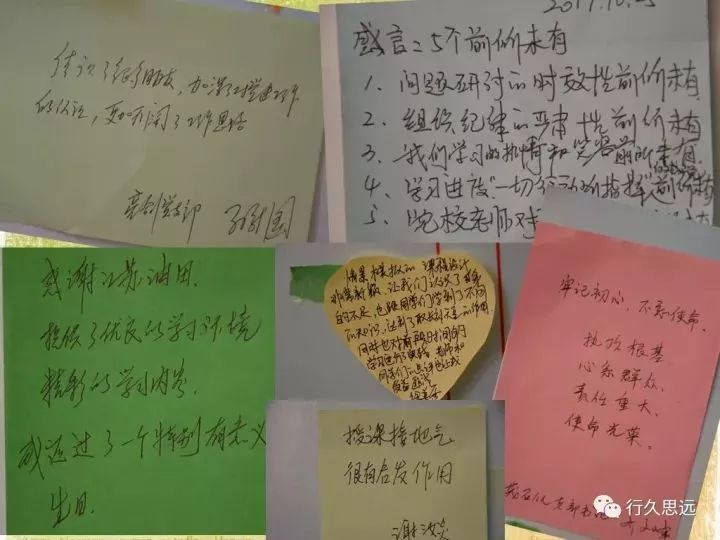 结识了很多朋友，加深了对党建工作
的认识，更加开阔了工作思路
2017.10.25
感言：5个前所未有
1、问题研讨的时效性前所未有
2、组织纪律的严肃性前所未有
3、我们学习的热情和
前所未有
4、学习进度"一切行动听指挥"前所未有
5、院校老师对
感谢江苏油田.
提供了优良的学习环境
精彩的学习内容.
我还过了一个特别有意义
生日.
情景模拟的课程设计
非常新颖，让我们认识了
自的不足，也跟同学们学到了不同
的知识，达到了取长补短的作用.
同时也对前段时间的
学习
老师和
同学们的点评也让我
授课接地气
很有启发作用
谢波炎
牢记初心，不忘使命.
执政根基
心系群众.
责任重大.
使命光荣.
支部书记
行久思远